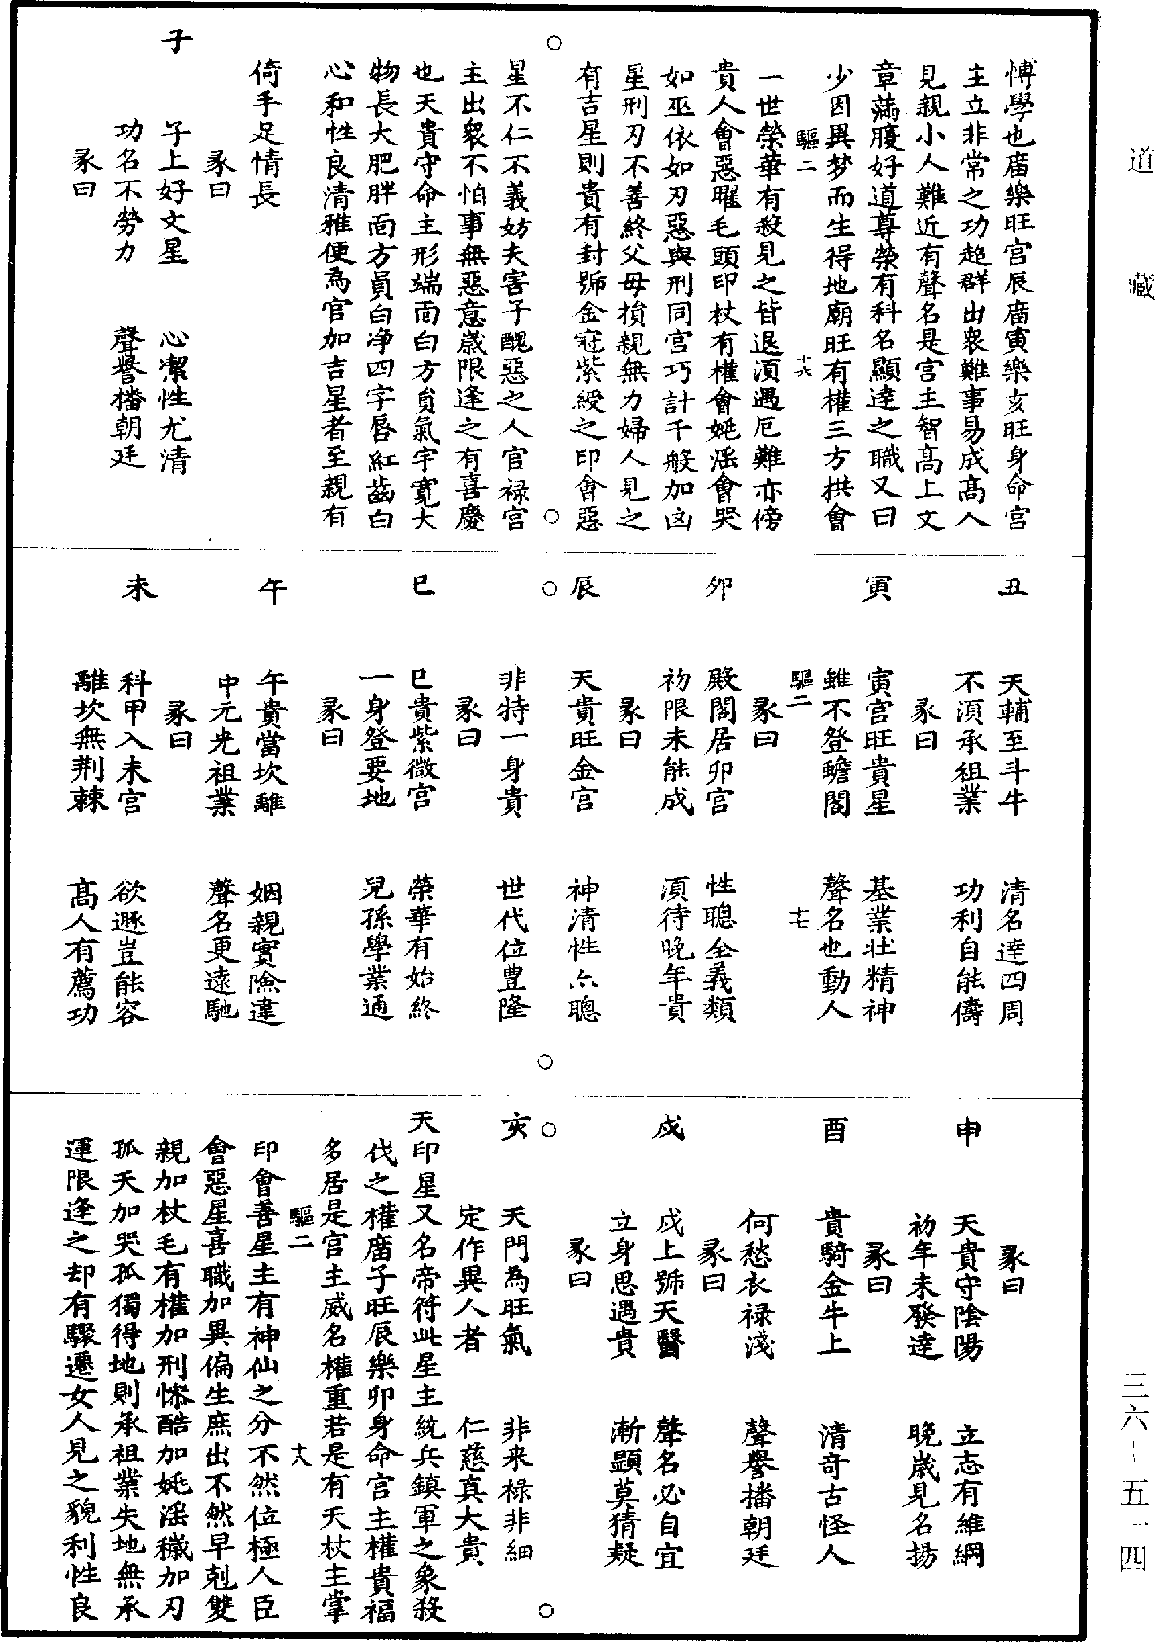 道藏
博學也廣樂旺宫辰廣寅樂亥旺身命宫
主立非常之功超群出衆難事易成髙人
見親小人難近有聲名是宫主智髙上文
章滿腹好道尊榮有科名顯達之職又曰
少因異梦而生得地廟旺有權三方拱會
驅二 十六
一世榮華有殺見之皆退湏遇厄難亦傍
貴人會惡曜毛頭印杖有權會姚淫會哭
如巫依如刃惡與刑同宫巧計千般加凶
星刑刃不善終父母損親無力婦人見之
有吉星則貴有封號金冠紫綬之印會惡
星不仁不義妨夫害子醜惡之人官禄宫
主出衆不怕事無惡意歲限逢之有喜慶
也天貴守命主形端面白方負氣宇寛大
物長大肥胖面方員白净四字唇紅齒白
心和性良清雅便為官加吉星者至親有
倚手足情長
彖曰
子 子上好文星 心潔性尤清
功名不勞力 聲譽播朝廷
彖曰
丑 天輔至斗牛 清名達四周
不湏承祖業 功利自能儔
彖曰
寅 寅宫旺貴星 基業壮精神
雖不登瞻閣 聲名也動人
驅二 十七
彖曰
卯 殿閣居卯宫 性聰全義類
初限未能成 湏待晚年貴
彖曰
辰 天貴旺金宫 神清性亦聰
非特一身貴 世代位豊隆
彖曰
巳 巳貴紫微宫 榮華有始終
一身登要地 兒孫學業通
彖曰
午 午貴當坎離 姻親實險違
中元光祖業 聲名更遠馳
彖曰
未 科甲入未宫 欲遯豈能容
離坎無荆棘 髙人有薦功
彖曰
申 天貴守陰陽 立志有維綱
初年未發達 晚歲見名揚
彖曰
酉 貴騎金牛上 清奇古怪人
何愁衣禄淺 聲譽播朝廷
彖曰
戍 戍上號天醫 聲名必自宜
立身思遇貴 漸顯莫猜疑
彖曰
亥 天門為旺氣 非来禄非細
定作異人者 仁慈真大貴
天印星又名帝符此星主統兵鎮軍之象殺
伐之權廣子旺辰樂卯身命宫主權貴福
多居是宫主威名權重若是有天杖主掌
驅二 十八
印會善星主有神仙之分不然位極人臣
會惡星喜職加異偏生庶出不然早剋雙
親加杖毛有權加刑慘酷加姚淫穢加刃
孤天加哭孤獨得地則承祖業失地無承
運限逢之却有驟遷女人見之貌利性良
三六-五一四